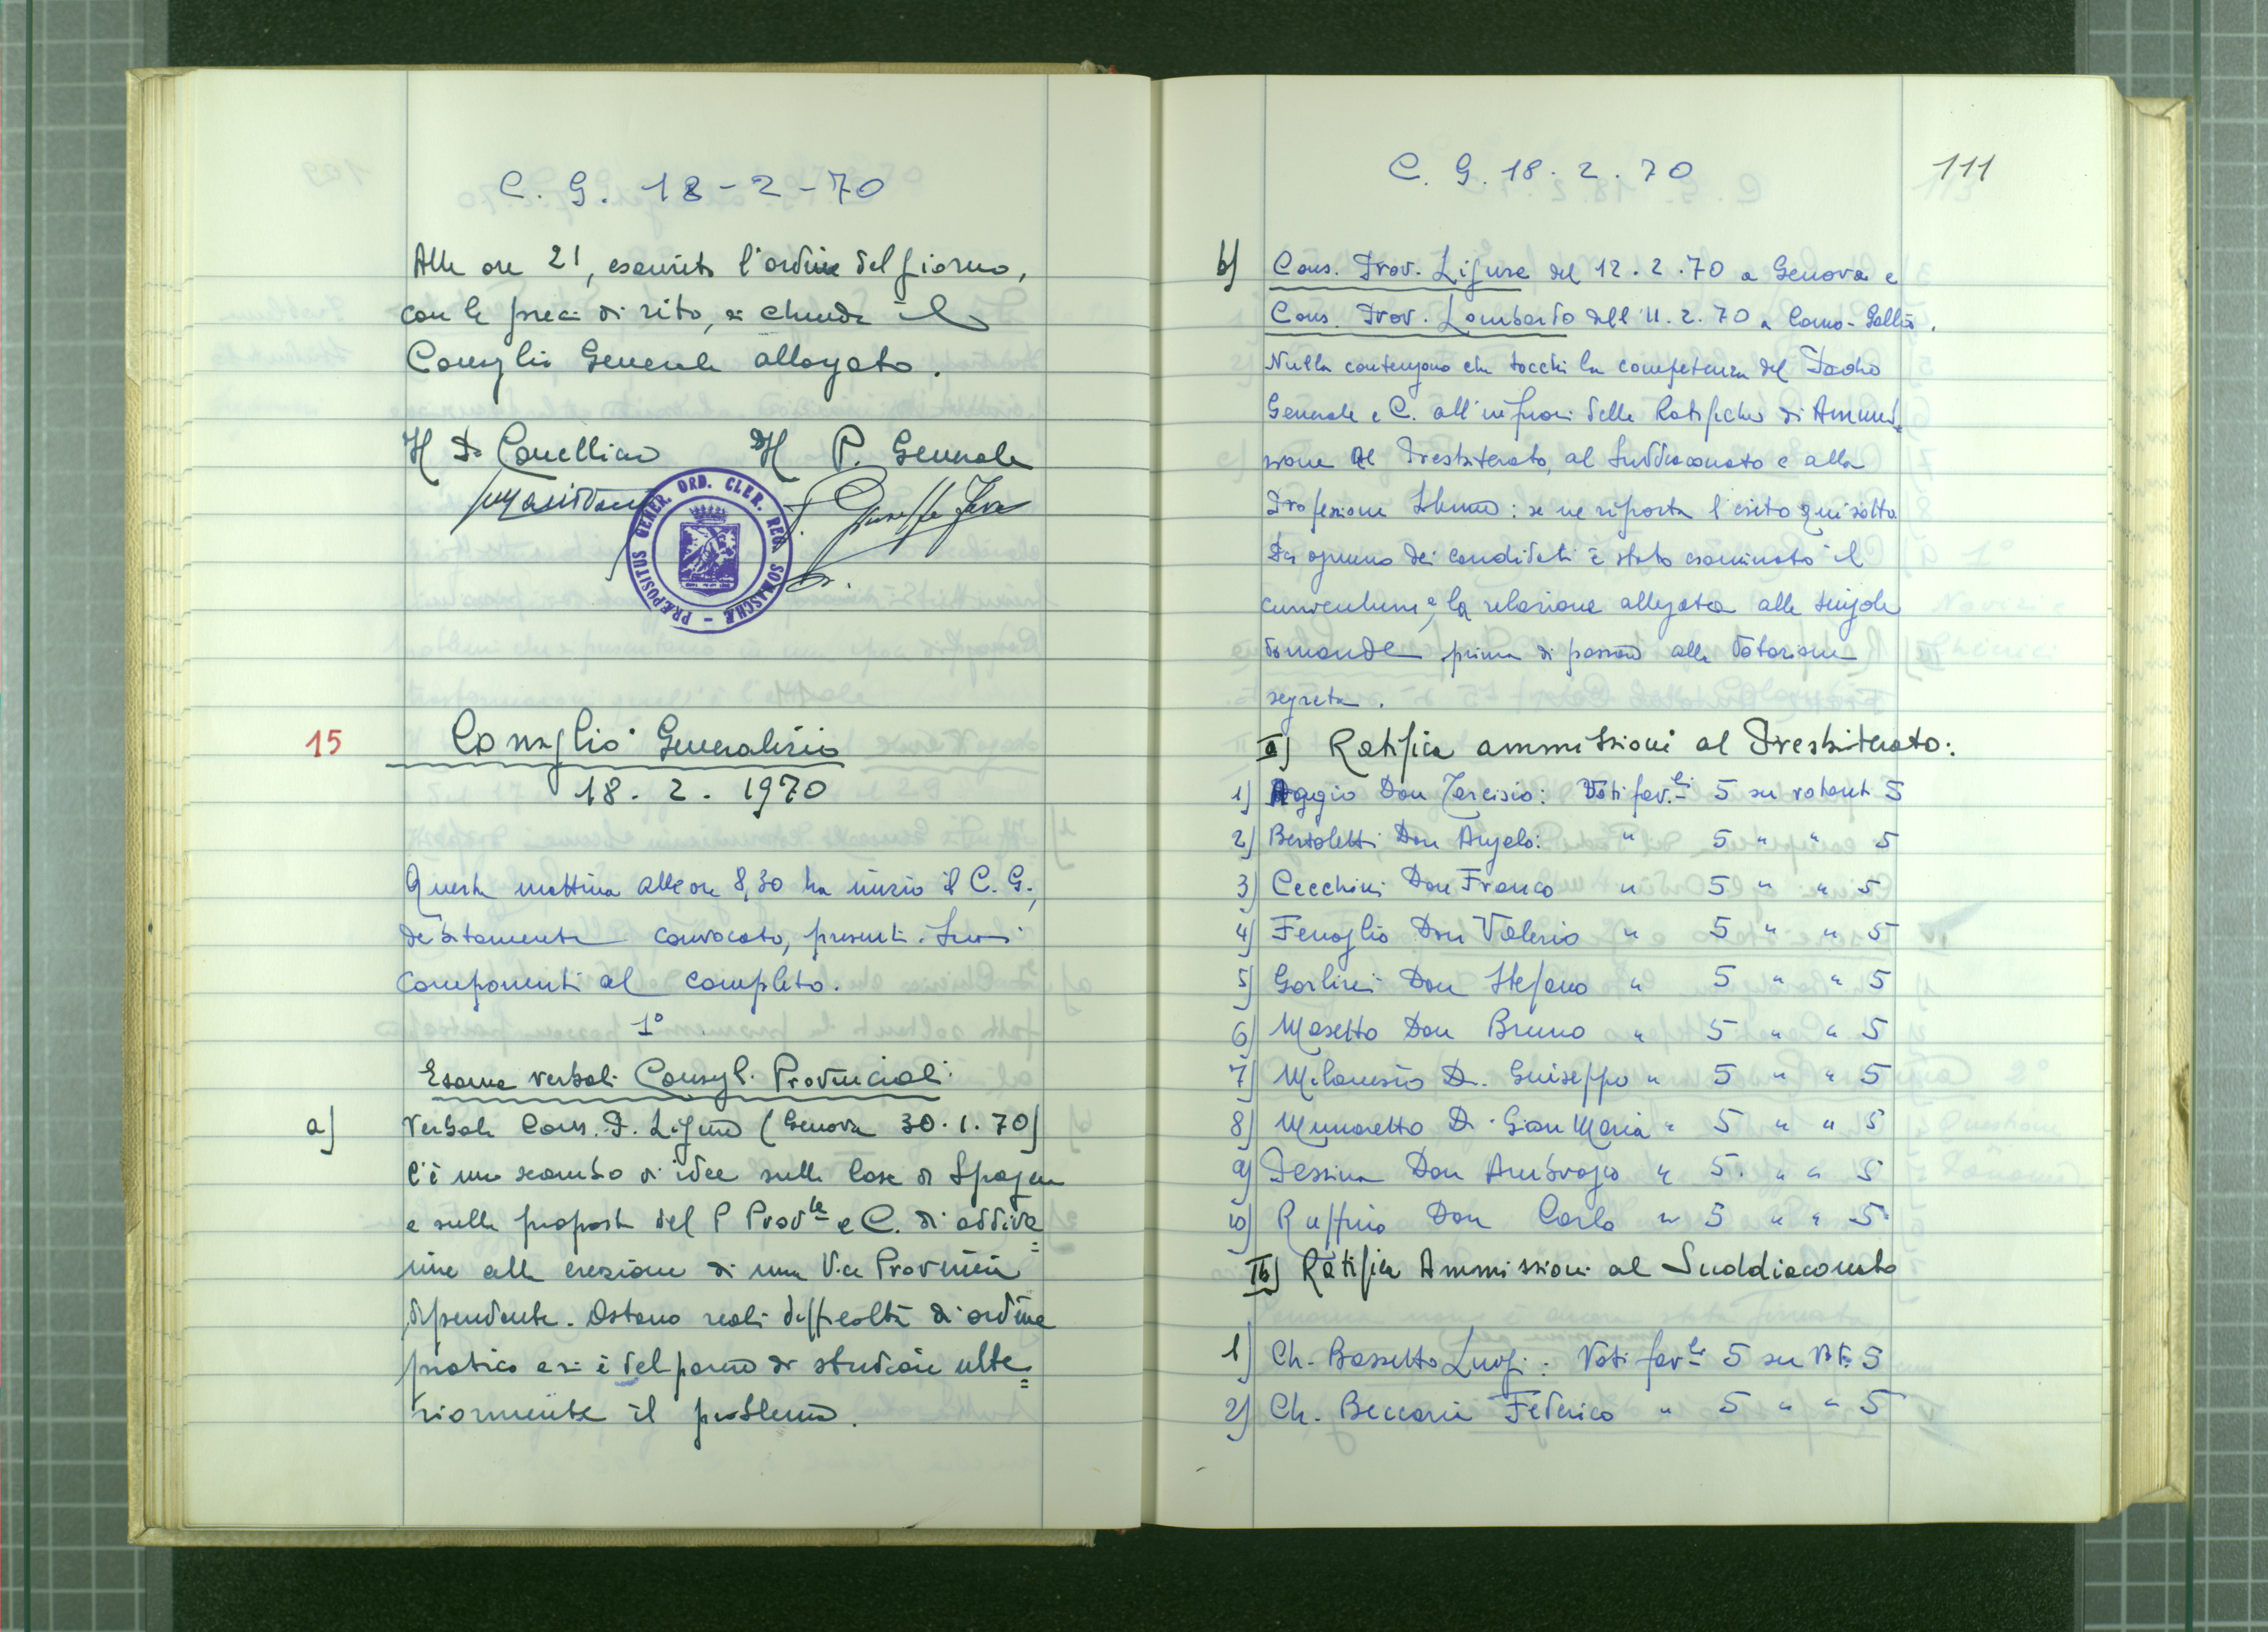 C. G. 18-2-70
Alle ore 21, esaurito l'ordine del giorno,
con le preci di rito, si chiude il
Consiglio Generale allargato.
Il P. Cancelliere Il P. Generale
P. Giuseppe Fava
PRÆPOSITUS GENER. ORD. CLER. REG. SOMASCHÆ
15 Consiglio Generalizio
18. 2. 1970
Questa mattina alle ore 8,30 ha inizio il C. G.,
debitamente convocato, presenti i suoi
componenti al completo.
1°
Esame verbali Consigl. Provinciali
a) Verbale Cons. P. Ligure (Genova 30.1.70)
C'è uno scambio di idee sulle Case di Spagna
e sulla proposta del P Prov.le e C. di addive=
nire alla erezione di una Vice Provincia
dipendente. Ostano reali difficoltà di ordine
pratico e si è del parere di studiare ulte=
riormente il problema.
C. G. 18. 2. 70 111
b) Cons. Prov. Ligure del 12.2.70 a Genova e
Cons. Prov. Lombardo dell'11.2.70 a Como-Gallio.
Nulla contengono che tocchi la competenza del Padre
Generale e C. all'infuori delle Ratifiche di Ammis=
sione al Presbiterato, al Suddiaconato e alla
Professione Solenne: se ne riporta l'esito qui sotto.
Di ognuno dei candidati è stato esaminato il
curriculum e la relazione allegata alle singole
domande prima di passare alla votazione
segreta.
Ia) Ratifica ammissioni al Presbiterato:
1) Aggio Don Tarcisio: Voti fav.li 5 su votanti 5
2) Bertoletti Don Angelo: " 5 " " 5
3) Cecchini Don Franco " 5 " " 5
4) Fenoglio Don Valerio " 5 " " 5
5) Gorlini Don Stefano " 5 " " 5
6) Masetto Don Bruno " 5 " " 5
7) Milanesio D. Giuseppe " 5 " " 5
8) Munaretto D. Gian Maria " 5 " " 5
9) Pessina Don Ambrogio " 5. " " 5
10) Ruffino Don Carlo " 5 " " 5
Ib) Ratifica Ammissioni al Suddiaconato
1) Ch. Bassetto Luigi: Voti fav.li 5 su Vti 5
2) Ch. Beccaria Federico " 5 " " 5